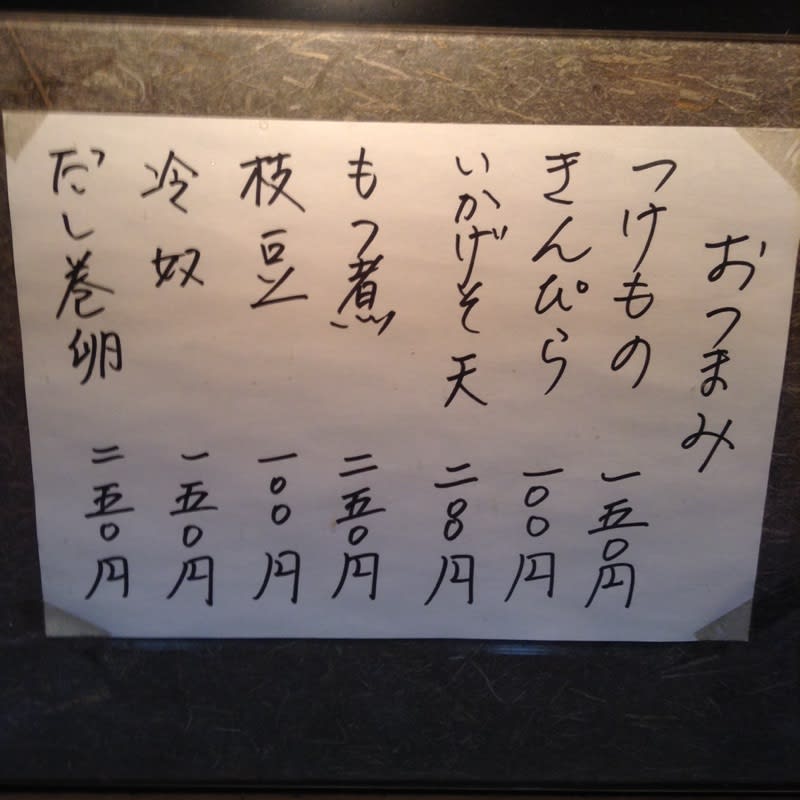 おつまみ
つけもの 一五〇円
きんぴら 一〇〇円
いかげそ天 二〇〇円
もつ煮 二五〇円
枝豆 一〇〇円
冷奴 一五〇円
だし巻卵 二五〇円